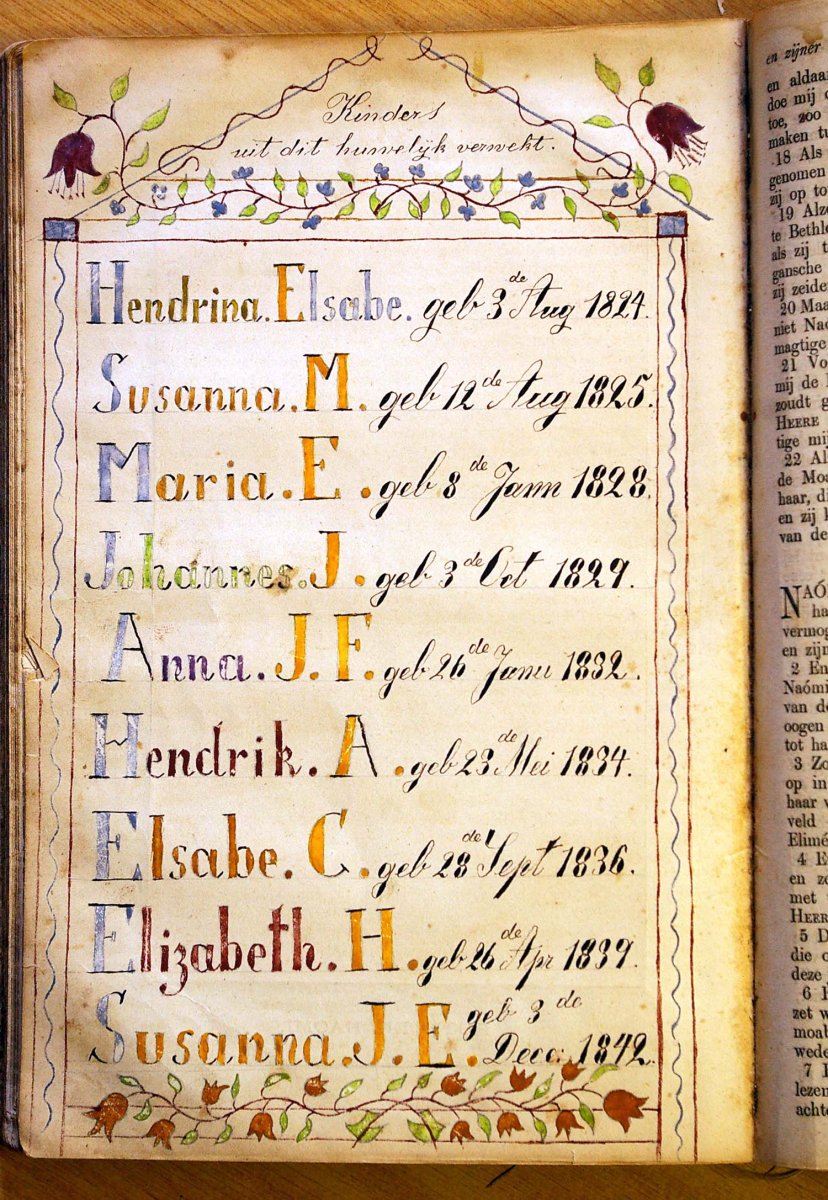 Kinders
uit dit huwelijk verwekt.
Hendrina. Elsabe. geb 3de Aug 1824.
Susanna. M. geb 12de Aug 1825.
Maria. E. geb 8de Jann 1828.
Johannes. J. geb 3de Oct 1829.
Anna. J. F. geb 26de Janu 1832.
Hendrik. A. geb 23de Mei 1834.
Elsabe. C. geb 28de Sept 1836.
Elizabeth. H. geb 26de Apr 1839.
Susanna. J. E. geb 3de
Dece: 1842.
en zijner
en aldaa
doe mij
toe, zoo
maken tu
18 Als
genomen
zij op to
19 Alz
te Bethl
als zij t
gansche
zij zeide
20 Maa
niet Nao
magtige
21 Vo
mij de
zoudt g
HEERE
tige mi
22 Al
de Moa
haar, di
en zij
van de
NAÓ
ha
vermog
en zijn
2 En
Naómi
van de
oogen
tot ha
3 Zo
op in
haar v
veld
Elimé
4 E
en ze
met
HEER
5 D
die o
deze
6
zet w
moab
wede
7
lezen
achte